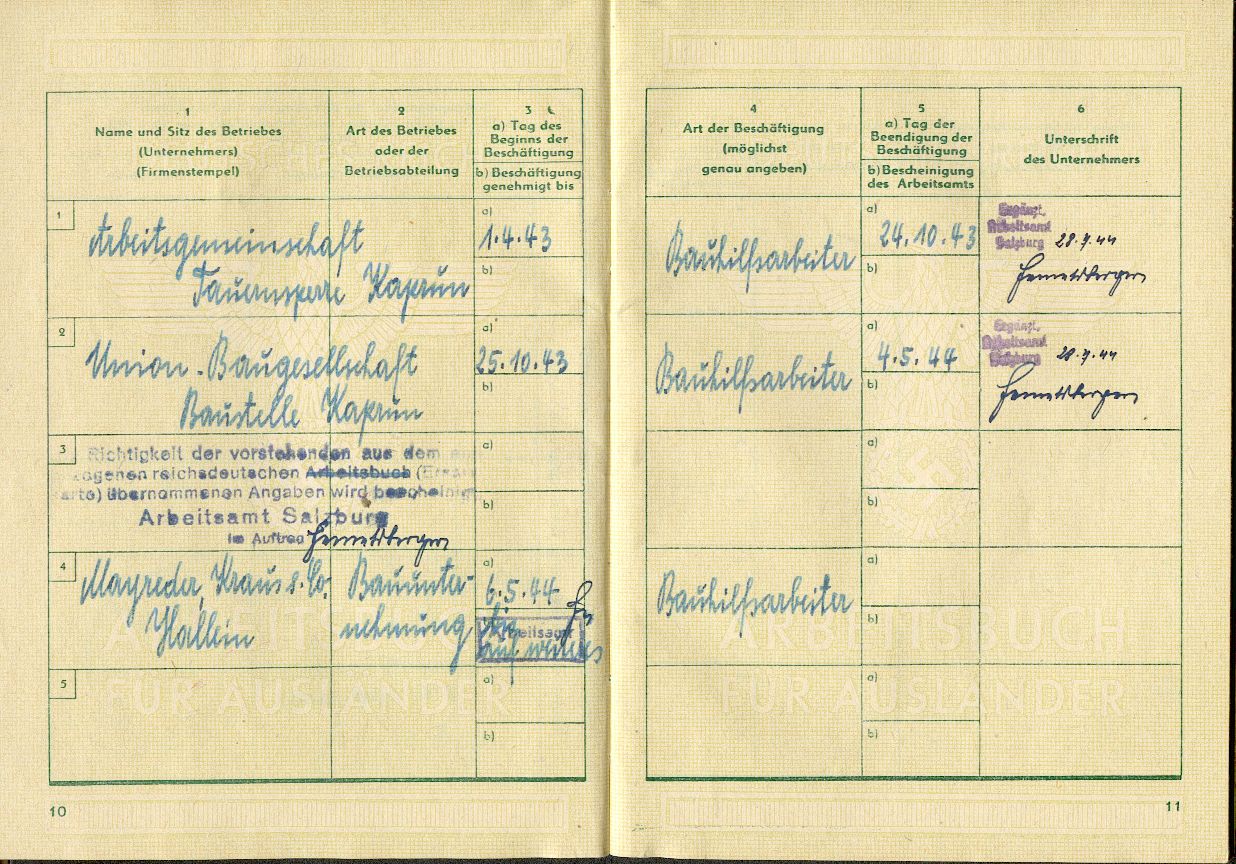 1
Name und Sitz des Betriebes
(Unternehmers)
(Firmenstempel)
2
Art des Betriebes
oder der
Betriebsabteilung
3
a) Tag des
Beginns der
Beschäftigung
b) Beschäftigung
genehmigt bis
4
Art der Beschäftigung
(möglichst
genau angeben)
5
a) Tag der
Beendigung der
Beschäftigung
b) Bescheinigung
des Arbeitsamts
6
Unterschrift
des Unternehmers
1
Arbeitsgemeinschaft
Tauernsperre Kaprun
a)
1.4.43
b)
Bauhilfsarbeiter
a)
24.10.43
b)
Ergänzt.
Arbeitsamt
Salzburg
28.7.44
Hemetsberger
2
Union-Baugesellschaft
Baustelle Kaprun
a)
25.10.43
b)
Bauhilfsarbeiter
a)
4.5.44
b)
Ergänzt.
Arbeitsamt
Salzburg
28.7.44
Hemetsberger
3
Richtigkeit der vorstehenden aus dem
zogenen reichsdeutschen Arbeitsbuch (Ersatz
arte) übernommenen Angaben wird bescheinigt
Arbeitsamt Salzburg
Im Auftrag Hemetsberger
a)
b)
a)
b)
4
Mayreder, Kraus & Co.
Hallein
Bauunter-
nehmung
a)
6.5.44
bis
Arbeitsamt
auf weiteres
Bauhilfsarbeiter
a)
b)
5
a)
b)
a)
b)
ARBEITSBUCH
FÜR AUSLÄNDER
ARBEITSBUCH
FÜR AUSLÄNDER
10
11